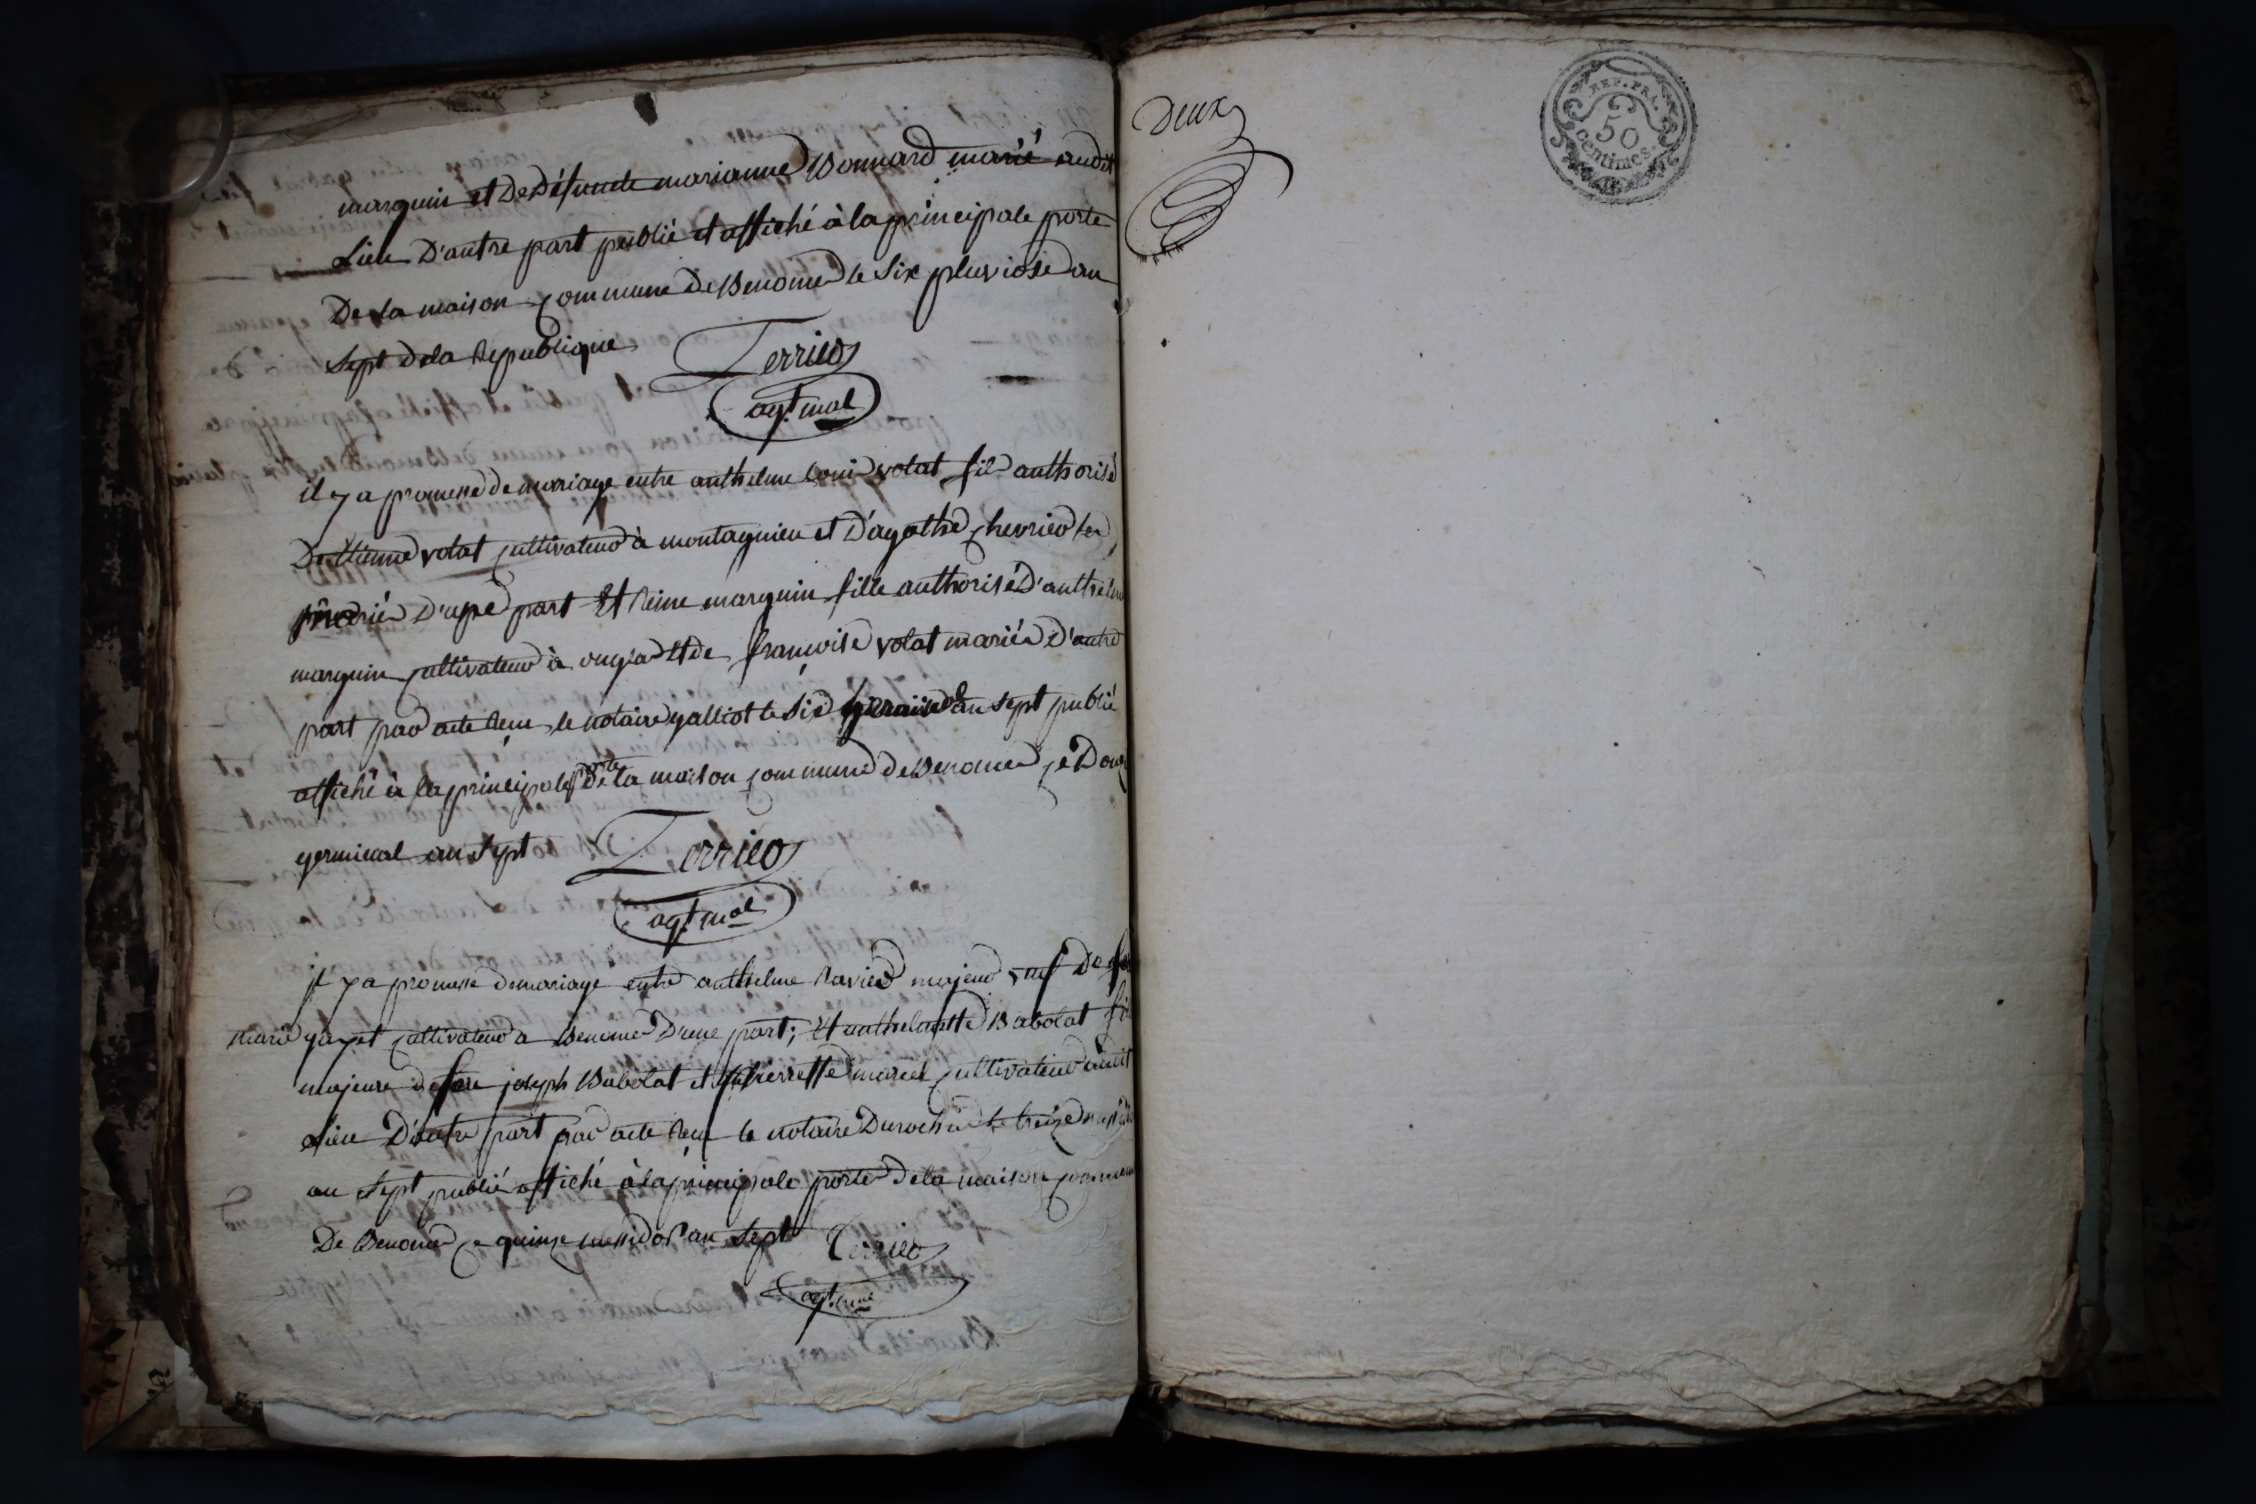 marquin et De Défunte marianne Bonnard marié audit
Lieu D'autre part publié et affiché à la principale porte
De la maison commune de Benonce le Six pluviose an
Sept de la Republique
Terrier
agt. mal
il y a promesse de mariage entre anthelme Louis volat fils authorisé
D'Etienne volat cultivateur à montagnieu et D'agathe chevrier
mariés D'une part Et Reine marquin fille authorisé D'anthelme
marquin cultivateur à Et de françoise volat mariés D'autre
part par acte Reçu le notaire galliot le Six germinal an sept publié
affiché à la principale porte De la maison commune de Benonce ce Douze
germinal an sept
Terrier
agt. mal
il y a promesse de mariage entre anthelme Ravier majeur veuf De
marie gayet cultivateur a Benonce D'une part; Et anthelmette Babolat
majeure de feu joseph Babolat et pierrette cultivateur audit
Lieu D'autre part par acte Reçu le notaire le treize
an Sept publié affiché à la principale porte de la maison commune
De Benonce ce quinze messidor an Sept
Terrier
agt. mal
Deux
REP. FRA.
50
centimes.